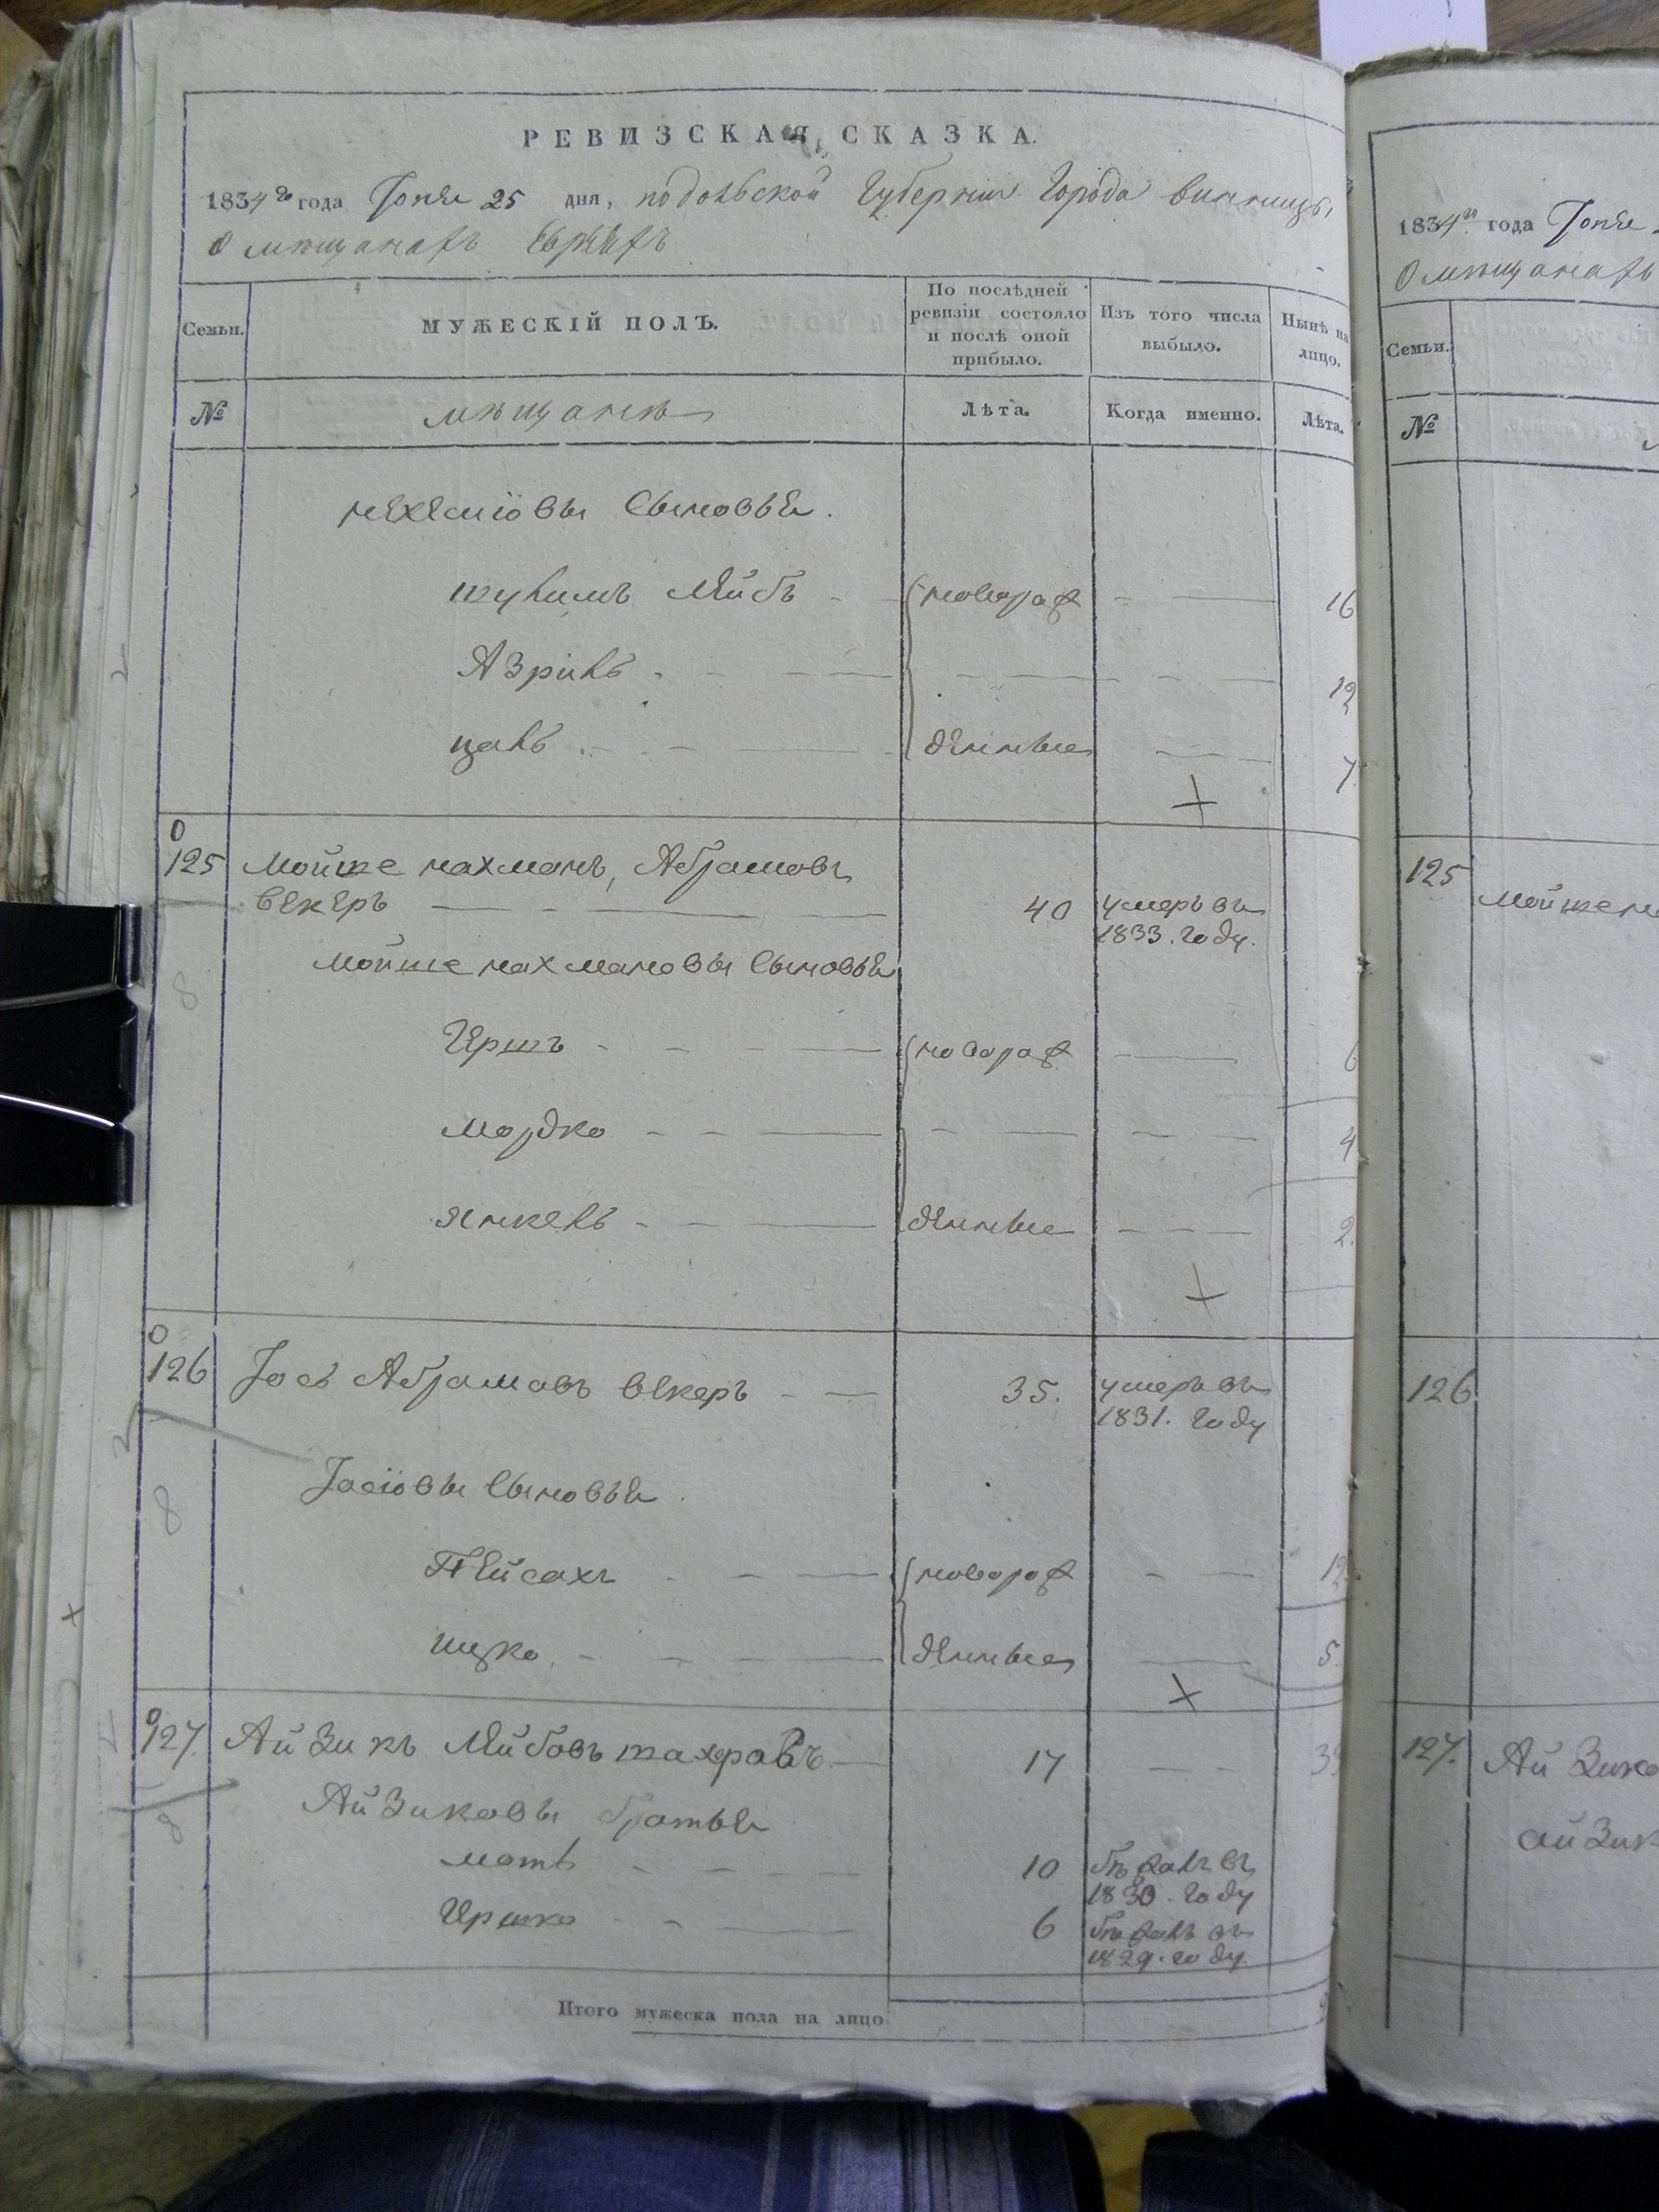 РЕВИЗСКАЯ СКАЗКА.
1834го года Іюня 25 дня, подольской Губернiи Города винницы
О мѣщанахъ Евреяхъ
Семьи.
МУЖЕСКІЙ ПОЛЪ.
По послѣдней ревизіи состояло и послѣ оной прибыло.
Изъ того числа выбыло.
Нынѣ на лицо.
№
мѣщане
Лѣта.
Когда именно.
Лѣта.
сыновья.
Лейбъ новорож 16
Азрилъ 12
цаль денные 7
125 Мойше нахманъ Абрамовъ
векеръ 40 умеръ въ
1833. году.
Мойше нахмановы сыновья
Гершъ новорож 6
Мордко 4
Янкель денные 2
126 Іось Абрамовъ векеръ 35. умеръ въ
1831. году
Іосіовы сыновья
Пейсахъ новорож 12
ицко денные 5
127 Айзикъ Лейбовъ 17
Айзиковы братья
мать 10 бѣжалъ въ
1830. году
Гершко 6 бѣжалъ въ
1829. году.
Итого мужеска пола на лицо
1834го года Іюня
О мѣщанахъ
Семьи.
№
125
126
127.